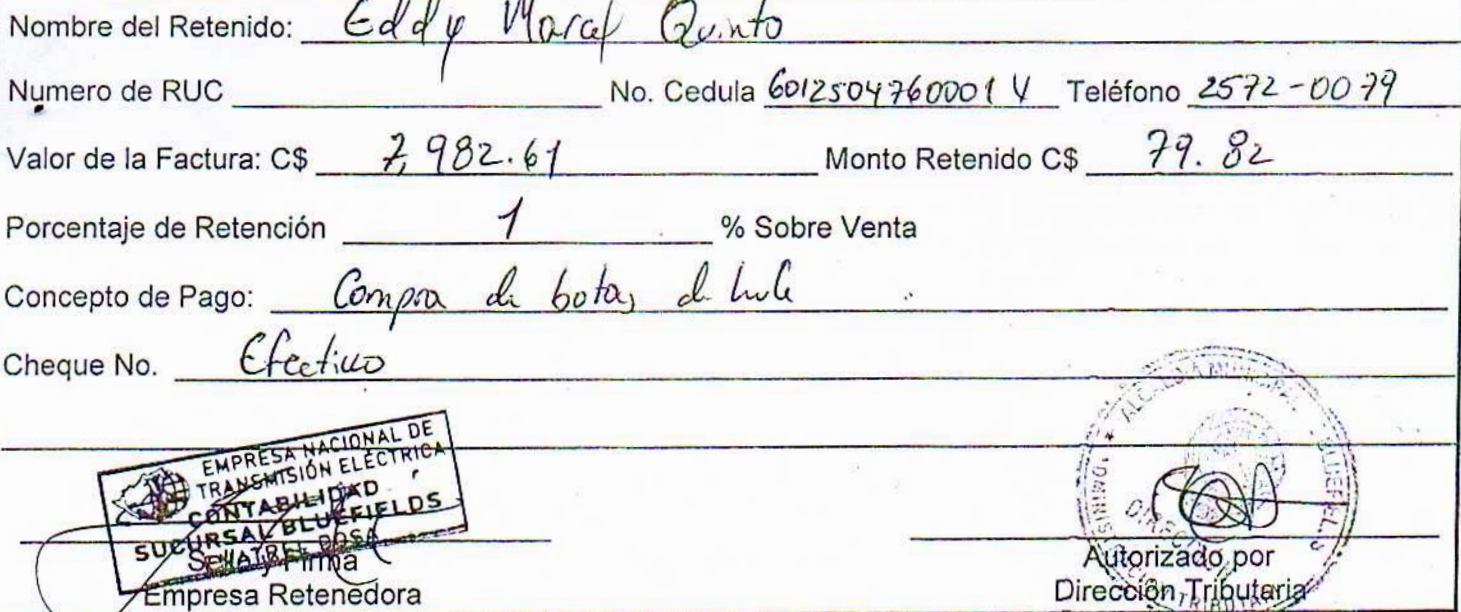 Nombre del Retenido: Eddy Marcel Quinto
Numero de RUC No. Cedula 6012504760001 Teléfono 2572-0079
Valor de la Factura: C$ 7,982.61 Monto Retenido C$ 79.82
Porcentaje de Retención 1 % Sobre Venta
Concepto de Pago: Compra de botas de hule
Cheque No. Efectivo
EMPRESA NACIONAL DE
TRANSMISIÓN ELÉCTRICA
CONTABILIDAD
SUCURSAL BLUEFIELDS
Firma
Empresa Retenedora
Autorizado por
Dirección Tributaria